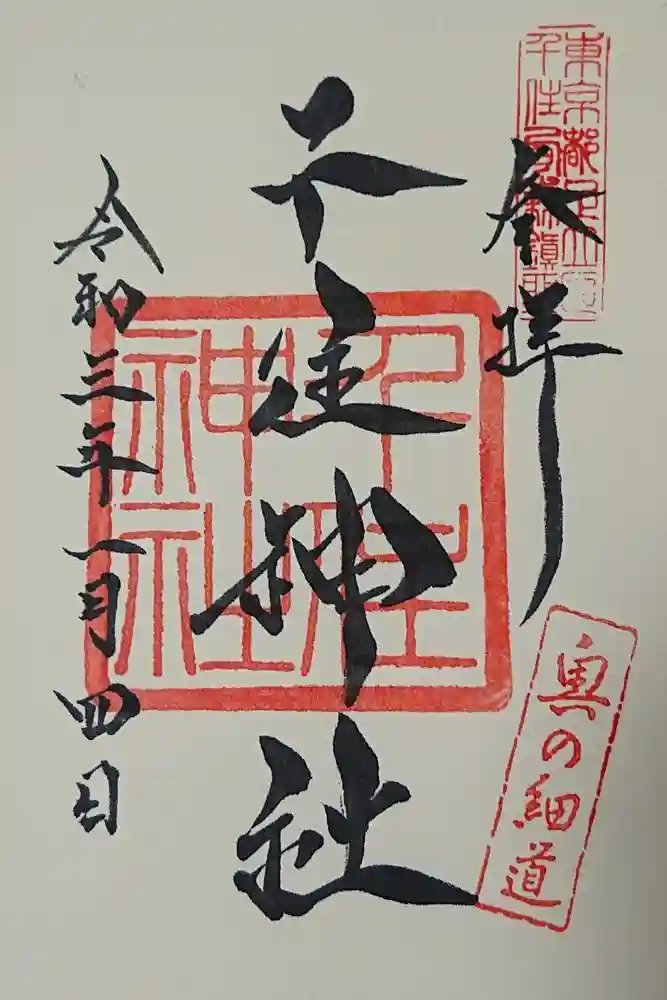 東京都足立區
千住宮元町鎮座
奉拝
奥の細道
千住神社
千住
神社
令和三年一月四日